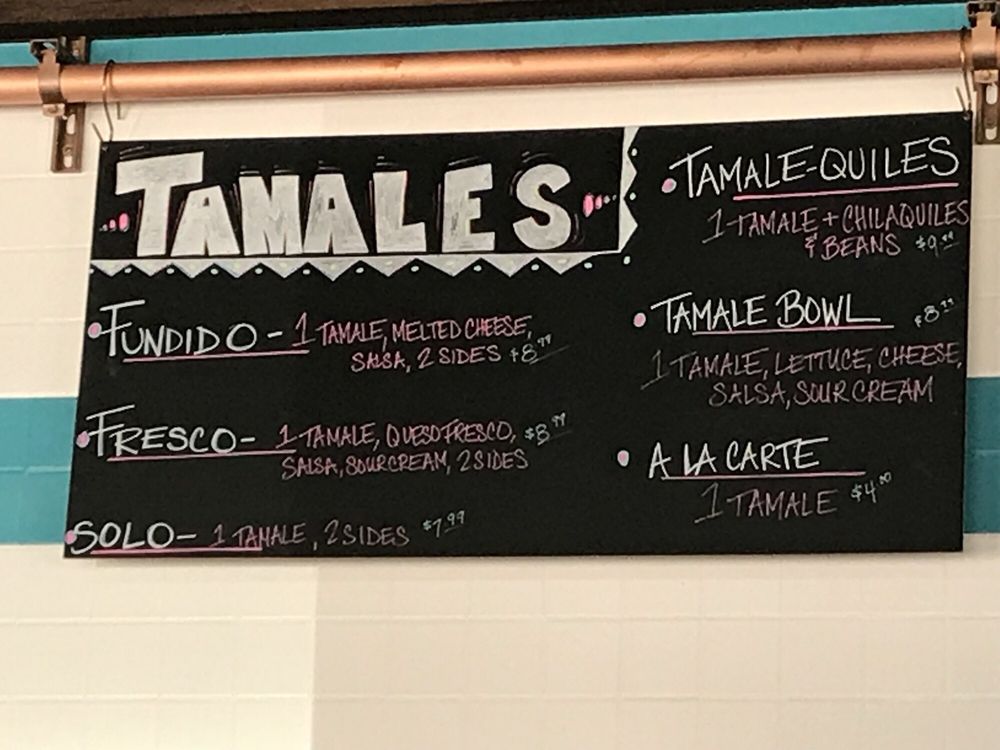 TAMALES
FUNDIDO - 1 TAMALE, MELTED CHEESE,
SALSA, 2 SIDES $8.99
FRESCO - 1 TAMALE, QUESO FRESCO, $8.99
SALSA, SOUR CREAM, 2 SIDES
SOLO - 1 TAMALE, 2 SIDES $7.99
TAMALE-QUILES
1 TAMALE + CHILAQUILES
& BEANS $9.99
TAMALE BOWL $8.99
1 TAMALE, LETTUCE, CHEESE,
SALSA, SOUR CREAM
A LA CARTE
1 TAMALE $4.00